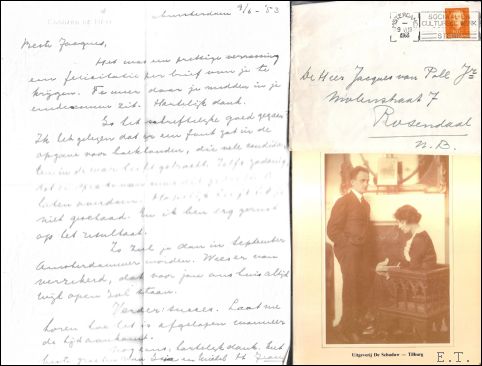 Amsterdam 9/6 - '53
Beste Jacques,
Het was een prettige verrassing
een felicitatie per brief van je te
krijgen. Te meer daar je midden in je
eindexamen zit. Hartelijk dank.
Is het schriftelijke goed gegaan?
Ik heb gelezen dat er een fout zat in de
opgave voor boekhouden, die vele candida-
ten in de war heeft gebracht. Zelfs zodanig,
dat
laten
niet gezakt. En ik ben erg gerust
op het resultaat.
Zo zul je dan in September
Amsterdammer worden. Wees er van
verzekerd, dat voor jou ons huis altijd
wijd open zal staan.
Verder: succes. Laat me
horen hoe het is afgelopen wanneer
de tijd
Nog eens, hartelijk dank. Met
beste groeten
9 VI
1953
SOCIAAL EN
CULTUREEL WERK
STEUNT
De Heer Jacques van Poll Jr.
Molenstraat 7
Rosendaal
N.B.
Uitgeverij De Schaduw — Tilburg
E.T.